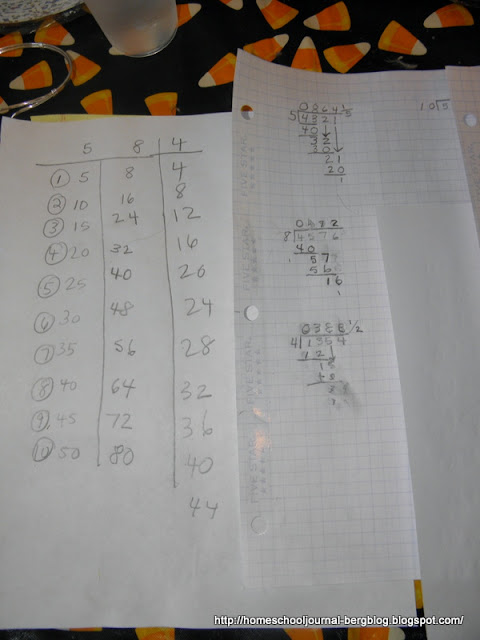 5 8 4
① 5 8 4
② 10 16 8
③ 15 24 12
④ 20 32 16
⑤ 25 40 20
⑥ 30 48 24
⑦ 35 56 28
⑧ 40 64 32
⑨ 45 72 36
⑩ 50 80 40
44
FIVE STAR
5 4321
40
21
20
1
10 5
8 4576
40
57
56
16
FIVE STAR
4
12
15
FIVE STAR
http://homeschooljournal-bergblog.blogspot.com/